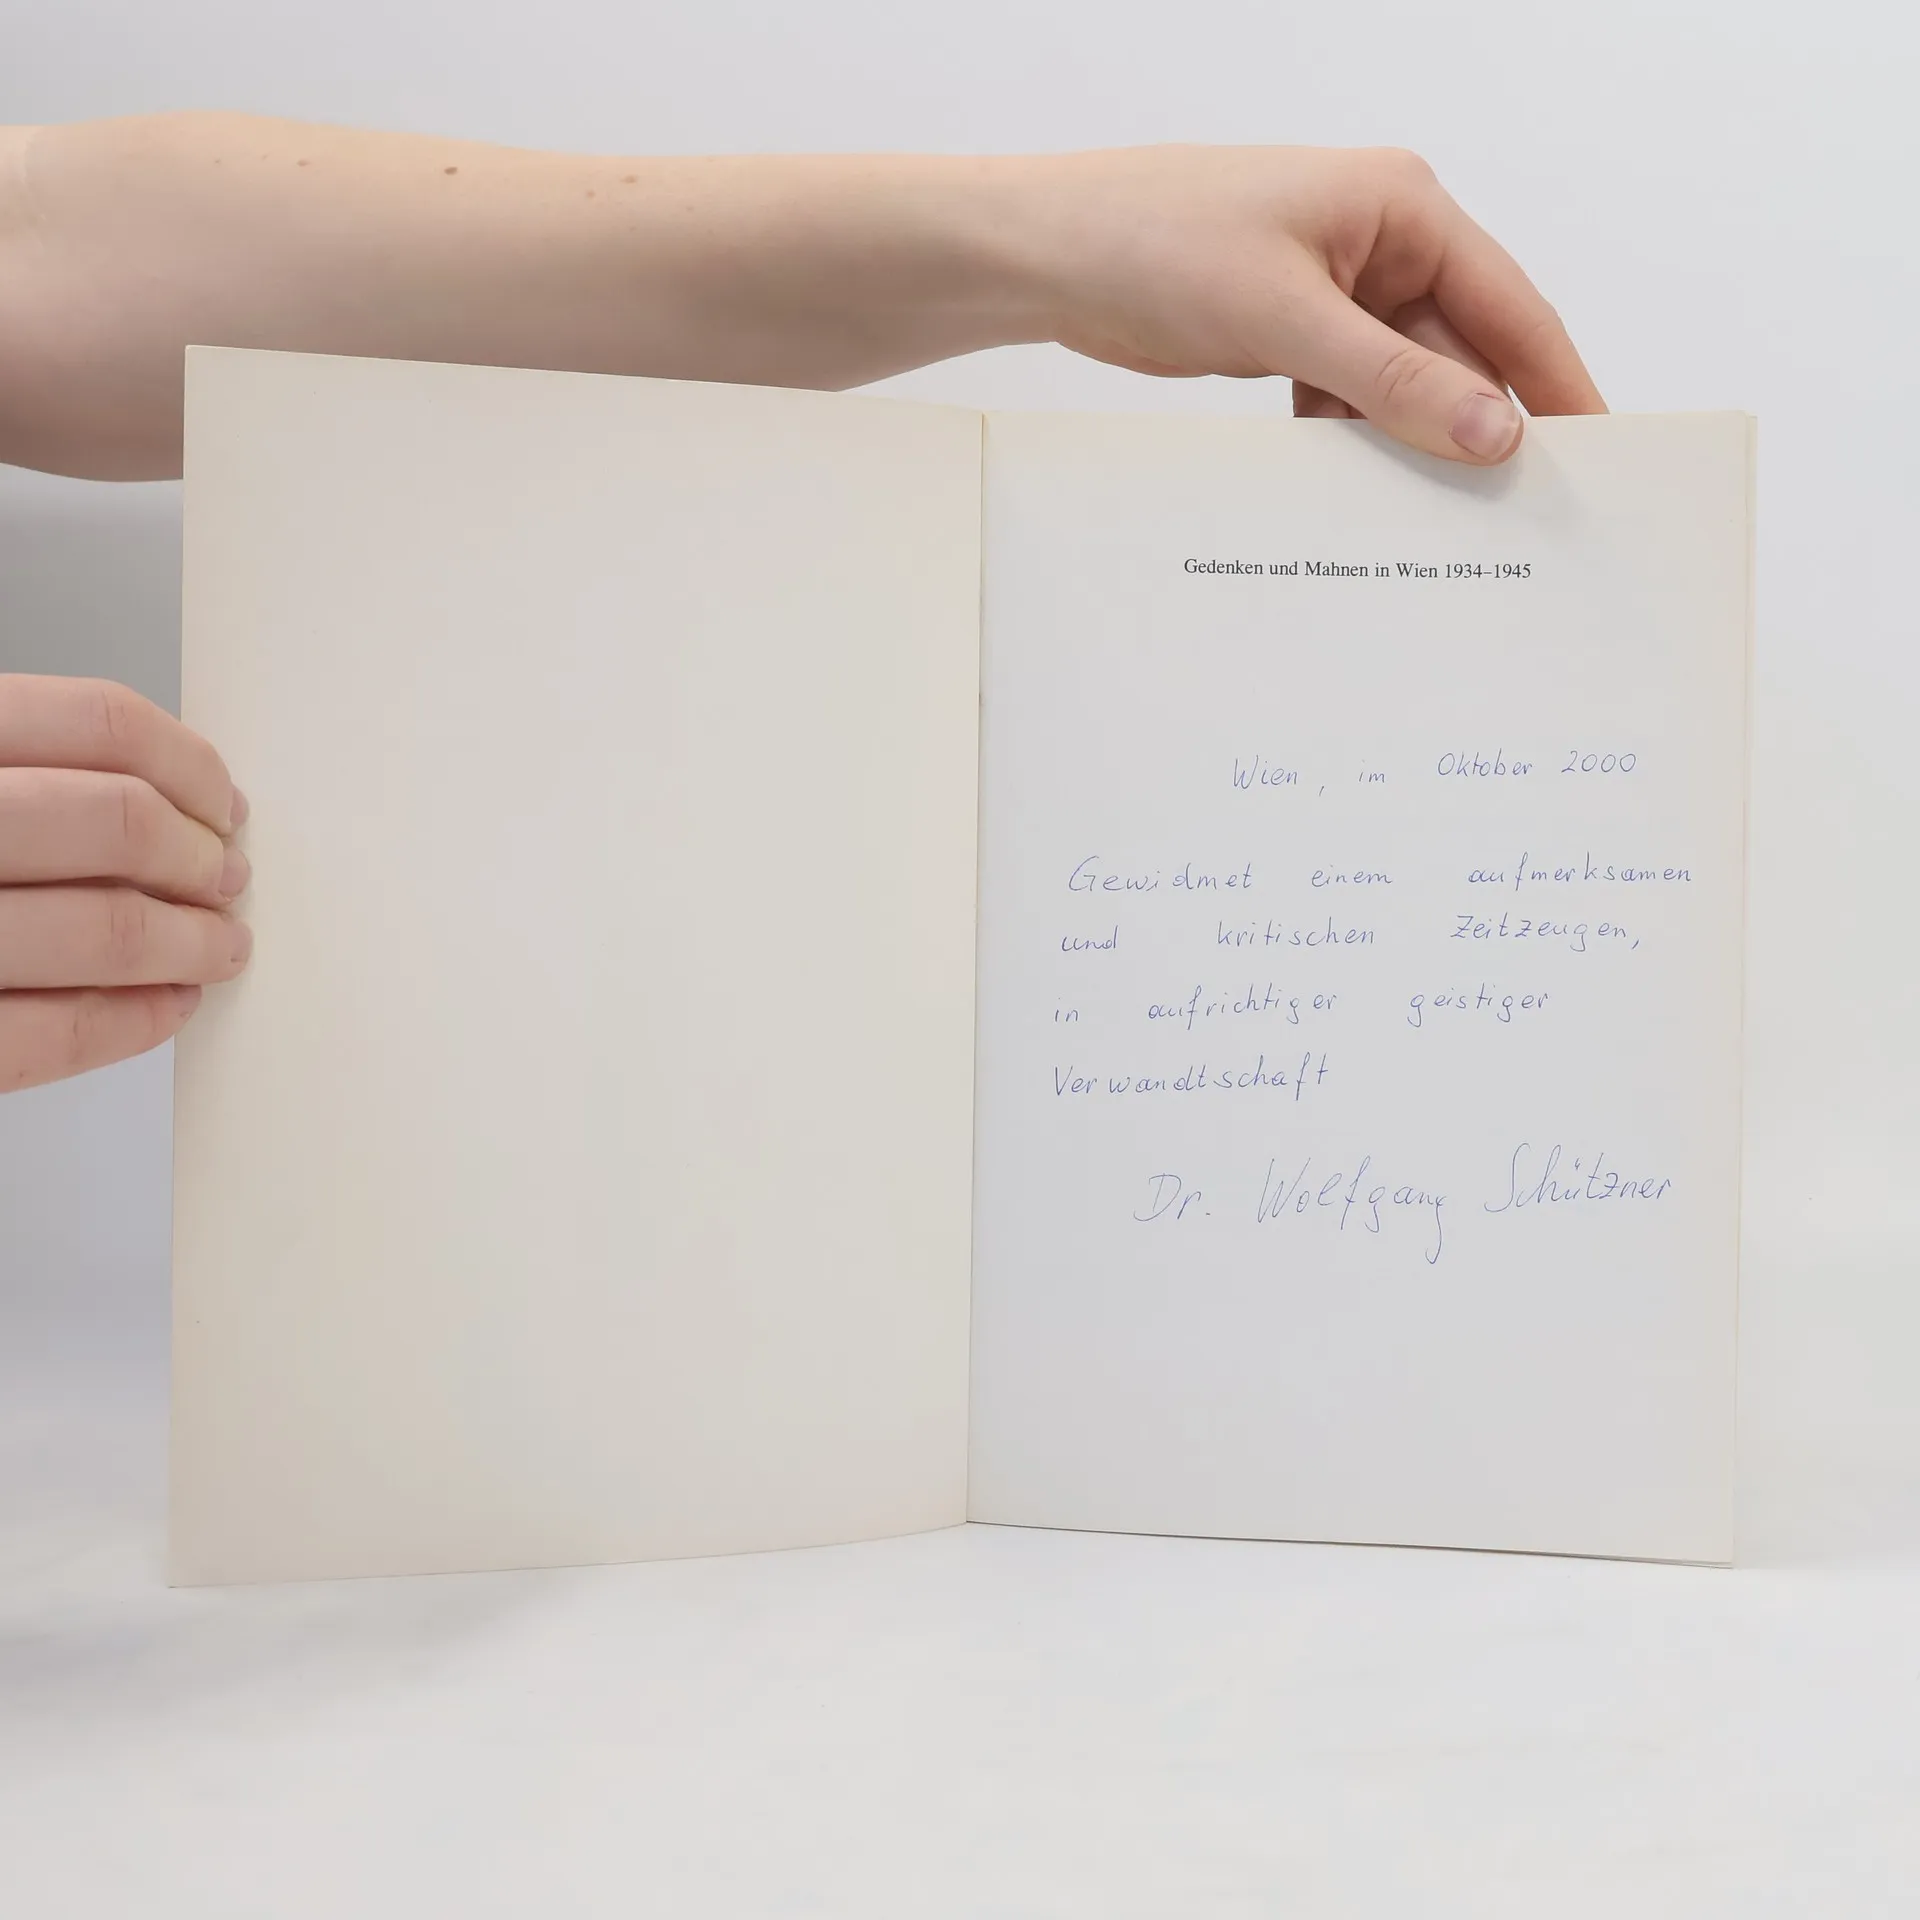 Gedenken und Mahnen in Wien 1934–1945
Wien, im Oktober 2000
Gewidmet einem aufmerksamen
und kritischen Zeitzeugen,
in aufrichtiger geistiger
Verwandtschaft
Dr. Wolfgang Schützner